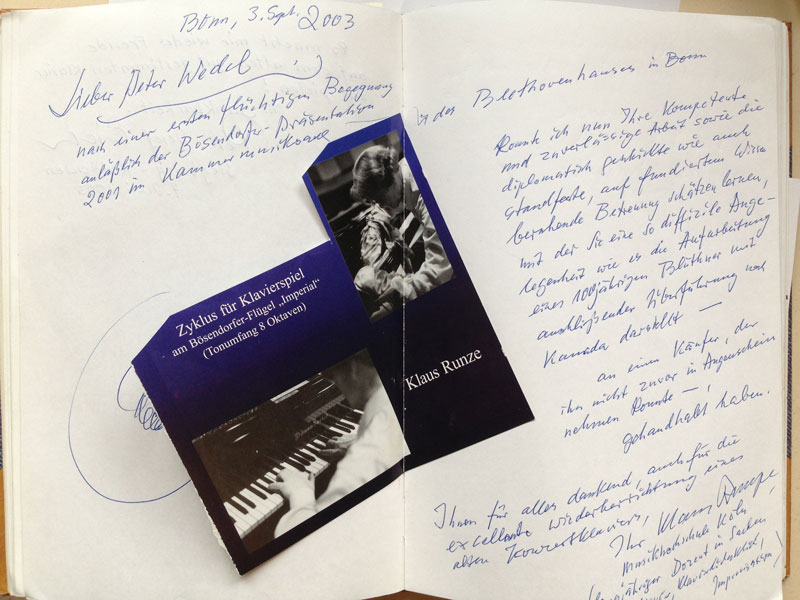 Bonn, 3. Sept. 2003
Lieber Peter Wedel,
nach einer ersten flüchtigen Begegnung
anläßlich der Bösendorfer-Präsentation
2001 im Kammermusiksaal
des Beethovenhauses in Bonn
konnte ich nun Ihre kompetente
und zuverlässige Arbeit sowie die
diplomatisch geschickte wie auch
standfeste, auf fundiertem Wissen
beruhende Betreuung schätzen lernen,
mit der Sie eine so diffizile Ange-
legenheit wie es die Aufarbeitung
eines 100jährigen Blüthner mit
anschließender Überführung nach
Kanada darstellt —
an einen Käufer, der
ihn nicht zuvor in Augenschein
nehmen konnte —,
gehandhabt haben.
Ihnen für alles dankend, auch für die
excellente Wiederherrichtung eines
alten Konzertklaviers,
Ihr Klaus Runze
Musikhochschule Köln
Dozent in Sachen
Klavierdidaktik,
Improvisation)
Zyklus für Klavierspiel
am Bösendorfer-Flügel „Imperial“
(Tonumfang 8 Oktaven)
Klaus Runze